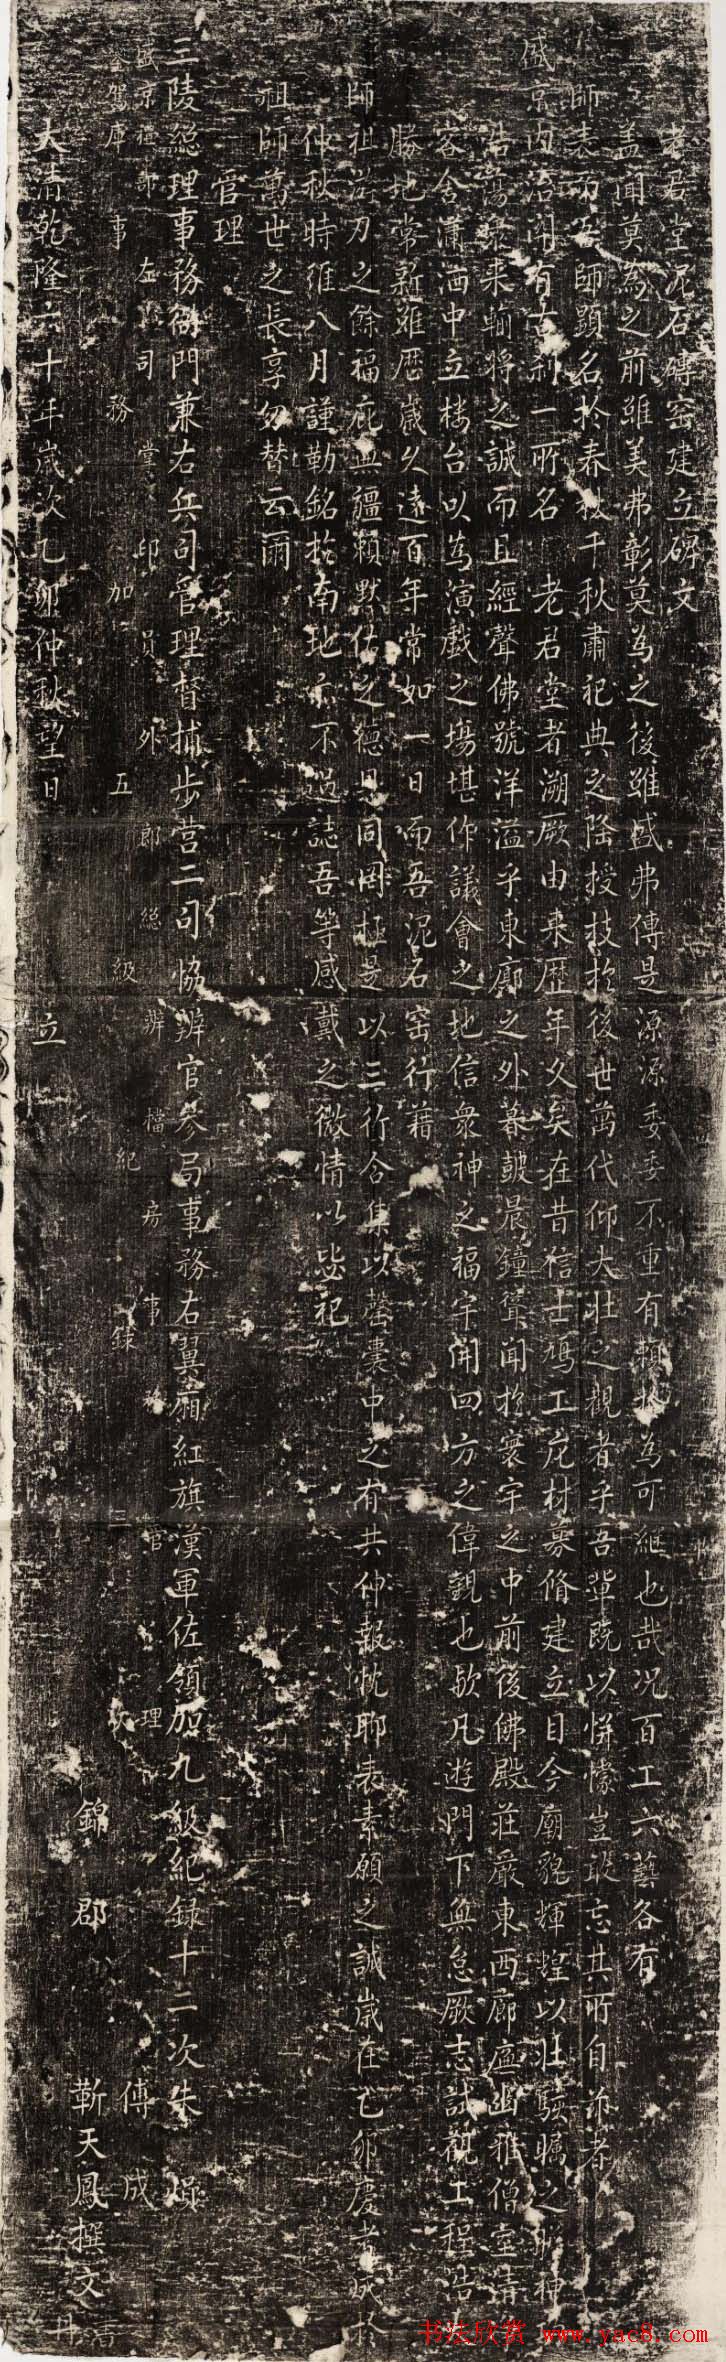 老君堂泥石磚窑建立碑文
蓋聞莫為之前雖美弗彰莫為之後雖盛弗傳是源源委委不重有賴於為可繼也哉况百工六藝各有
師表而吾師顯名於春秋千秋肅祀典之隆授技於後世萬代仰大壯之觀者乎吾輩既以恊懷豈敢忘其所自詐者
盛京内治門有古刹一所名 老君堂者溯厥由来歷年久矣在昔信士鳩工庀材募脩建立目今廟貌輝煌以壯騷矚之
浩蕩衆来輸將之誠而且經聲佛號洋溢乎東廊之外暮鼓晨鐘聲聞於寰宇之中前後佛殿莊嚴東西廊廡幽雅僧室清
客含瀟洒中立楼台以為演戲之塲堪作議會之地信衆神之福宇開四方之偉觀也歟凡遊門下無怠厥志試觀工程浩
勝地常新雖歷歲久遠百年常如一日而吾泥石窑行藉
師祖 刀之餘福庇無疆賴默佑之德恩同罔極是以三行合集以罄囊中之有共仲報忱耶表素願之誠歲在乙卯慶者成於
仲秋時維八月謹勒銘於南地 不過誌吾等感戴之微情以毖祀
祖師萬世之長享勿替云爾
管理
三陵総理事務衙門兼右兵司管理督捕步营二司恊辦官参局事務右翼廂紅旗漢軍佐領加九級紀録十二次朱 燦
盛京禮部左司掌印員外郎総辦檔房事 管理 傅成
駕庫事務加五級紀録三次
錦郡 靳天鳳撰文 書丹
大清乾隆六十年歲次乙卯仲秋望日 立
书法欣赏 www.yac8.com